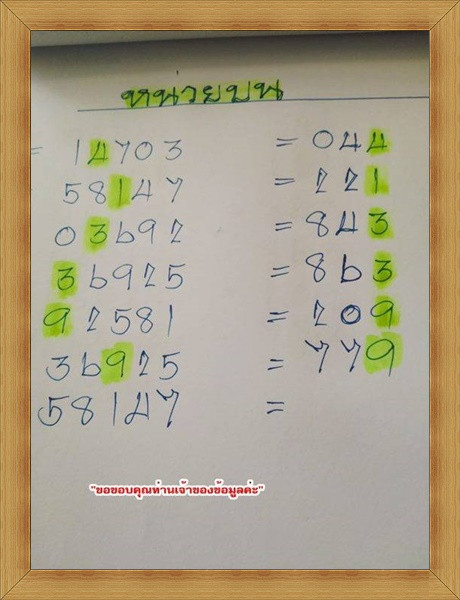 หน่วยบน
= 14703 = 044
58147 = 221
03692 = 843
36925 = 863
92581 = 209
36925 = 779
58147 =
"ขอขอบคุณท่านเจ้าของข้อมูลค่ะ"